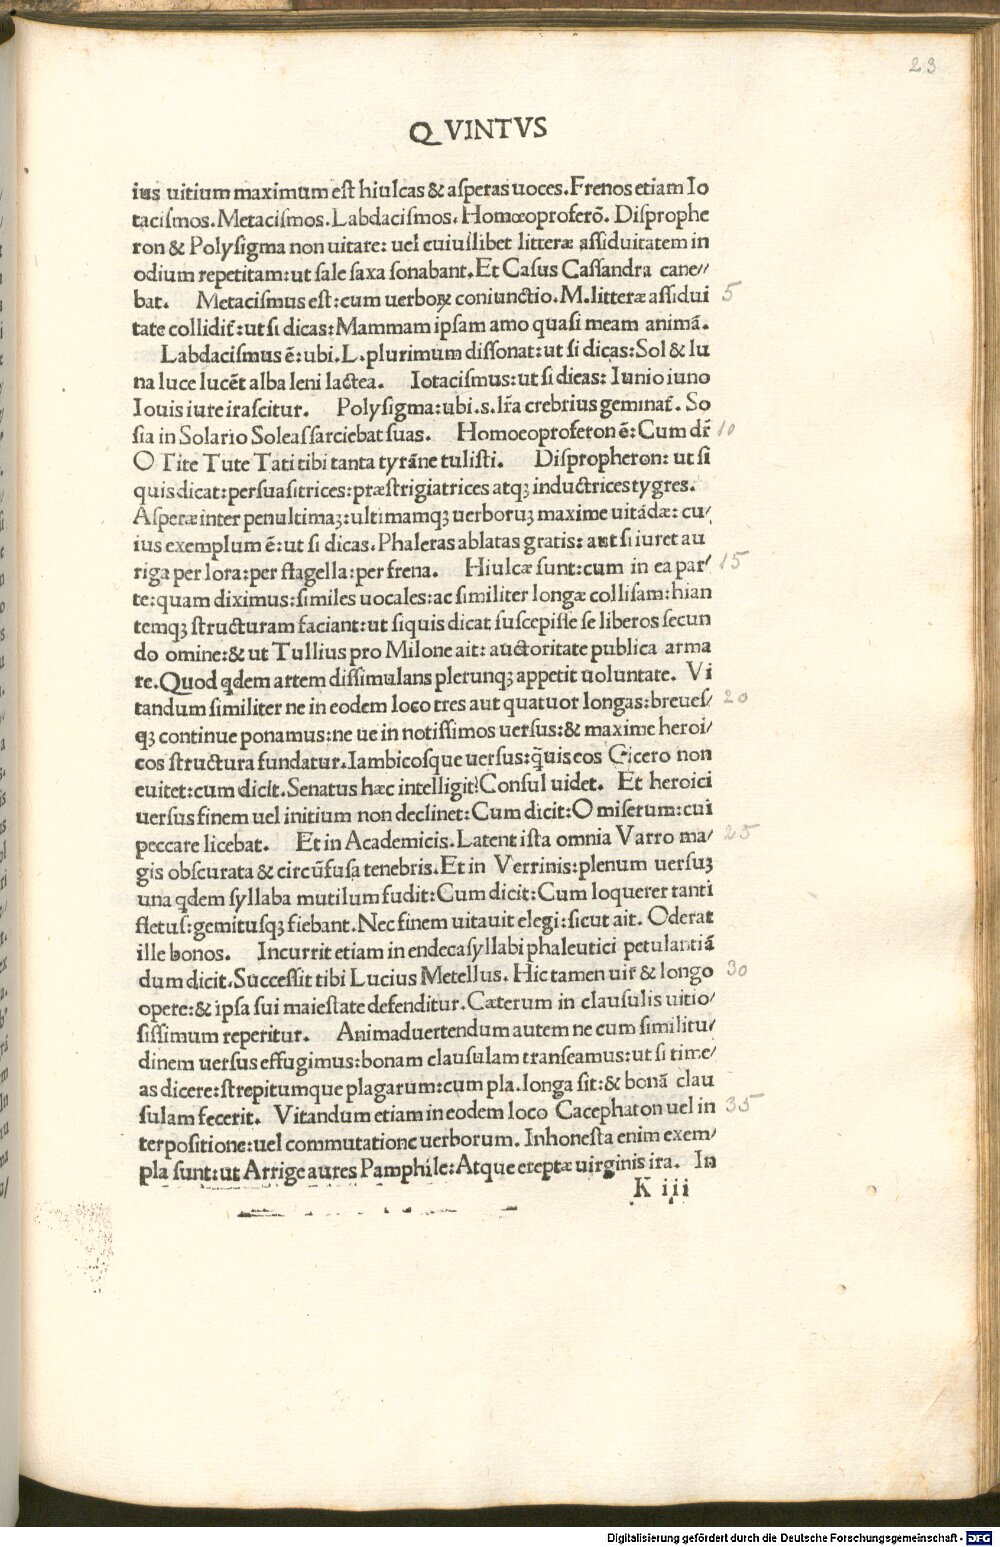 23
QVINTVS
ius uitium maximum est hiulcas & asperas uoces. Frenos etiam Io
tacismos. Metacismos. Labdacismos. Homœoproferõ. Disprophe
ron & Polysigma non uitare: uel cuiuslibet litteræ assiduitatem in
odium repetitam: ut sale saxa sonabant. Et Casus Cassandra cane//
bat. Metacismus est: cum uerboꝝ coniunctio. M. litteræ assidui 5
tate collidit̃: ut si dicas: Mammam ipsam amo quasi meam animã.
Labdacismus ẽ: ubi. L. plurimum dissonat: ut si dicas: Sol & lu
na luce lucẽt alba leni lactea. Iotacismus: ut si dicas: Iunio iuno
Iouis iure irascitur. Polysigma: ubi .s. lr̃a crebrius geminat̃. So
sia in Solario Soleas sarciebat suas. Homoeoproferon ẽ: Cum dr̃ 10
O Tite Tute Tati tibi tanta tyrãne tulisti. Dispropheron: ut si
quis dicat: persuasitrices: præstrigiatrices atqꝫ inductrices tygres.
Asperæ inter penultimaꝫ: ultimamqꝫ uerboruꝫ maxime uitãdæ: cu/
ius exemplum ẽ: ut si dicas. Phaleras ablatas gratis: aut si iuret au
riga per lora: per flagella: per frena. Hiulcæ sunt: cum in ea par/ 15
te: quam diximus: similes uocales: ac similiter longæ collisam: hian
temqꝫ structuram faciant: ut siquis dicat suscepisse se liberos secun
do omine: & ut Tullius pro Milone ait: auctoritate publica arma
re. Quod qdem artem dissimulans plerunqꝫ appetit uoluntate. Vi
tandum similiter ne in eodem loco tres aut quatuor longas: breues/ 20
qꝫ continue ponamus: ne ue in notissimos uersus: & maxime heroi/
cos structura fundatur. Iambicosque uersus: q̃uis eos Cicero non
euitet: cum dicit. Senatus hæc intelligit? Consul uidet. Et heroici
uersus finem uel initium non declinet: Cum dicit: O miserum: cui
peccare licebat. Et in Academicis. Latent ista omnia Varro ma/ 25
gis obscurata & circũfusa tenebris. Et in Verrinis: plenum uersuꝫ
una qdem syllaba mutilum fudit: Cum dicit: Cum loquerer tanti
fletus: gemitusqꝫ fiebant. Nec finem uitauit elegi: sicut ait. Oderat
ille bonos. Incurrit etiam in endecasyllabi phaleutici petulantiã
dum dicit. Successit tibi Lucius Metellus. Hic tamen uir̃ & longo 30
opere: & ipsa sui maiestate defenditur. Cæterum in clausulis uitio/
sissimum reperitur. Animaduertendum autem ne cum similitu/
dinem uersus effugimus: bonam clausulam transeamus: ut si time/
as dicere: strepitumque plagarum: cum pla. longa sit: & bonã clau
sulam fecerit. Vitandum etiam in eodem loco Cacephaton uel in 35
terpositione: uel commutatione uerborum. Inhonesta enim exem/
pla sunt: ut Arrige aures Pamphile: Atque ereptæ uirginis ira. In
K iii
Digitalisierung gefördert durch die Deutsche Forschungsgemeinschaft - DFG